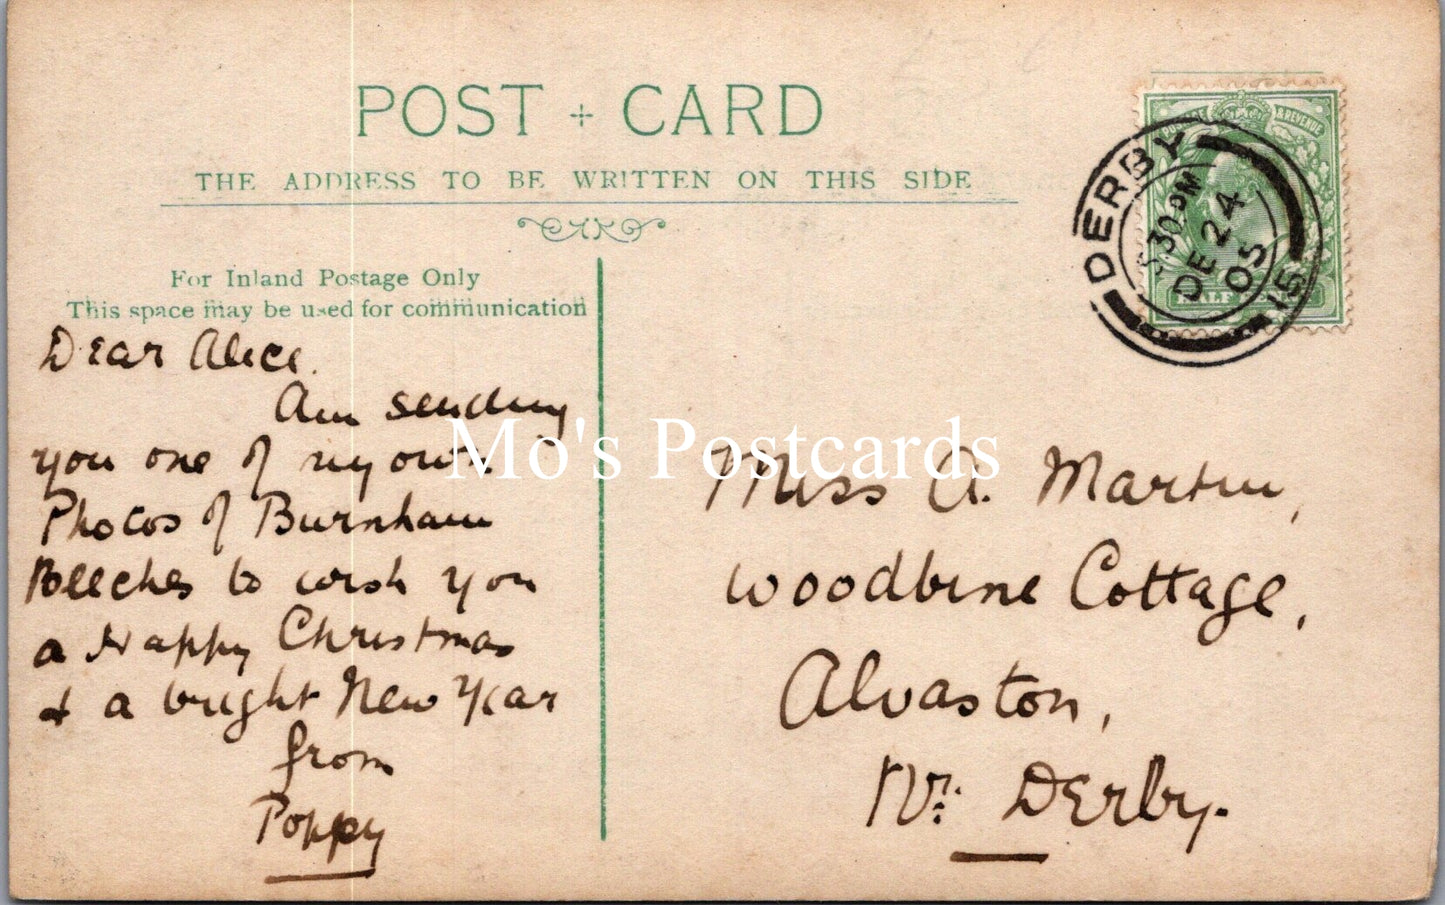 POST + CARD
THE ADDRESS TO BE WRITTEN ON THIS SIDE
For Inland Postage Only
This space may be used for communication
Dear Alice.
Am sending
you one of my own
Photos of Burnham
Beeches to wish you
a Happy Christmas
& a bright New Year
from
Poppy
Miss A. Martin,
Woodbine Cottage,
Alvaston,
Nr. Derby.
POSTAGE & REVENUE
HALF
DERBY
30 PM
DE 24
05
15
Mo's Postcards